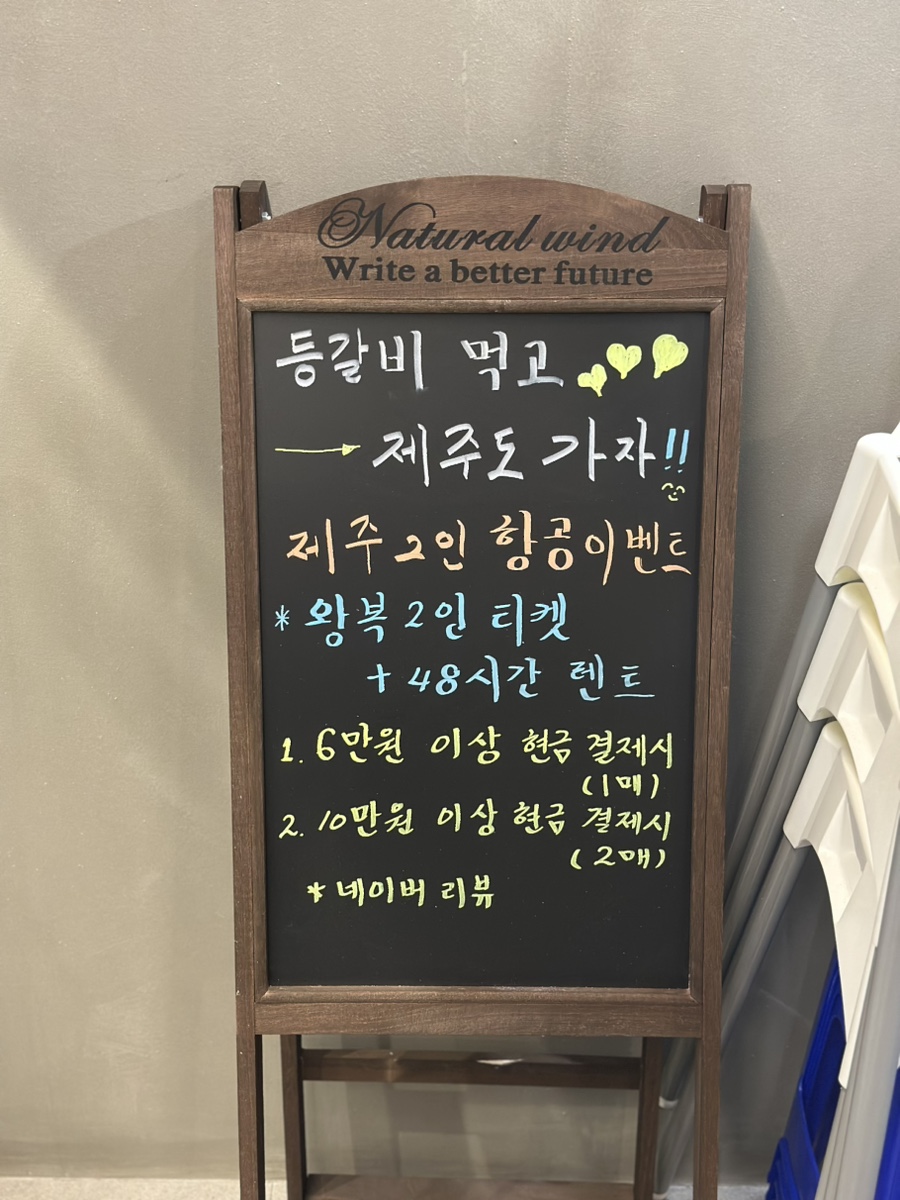 Natural wind
Write a better future
등갈비 먹고
→ 제주도 가자!!
제주 2인 항공이벤트
* 왕복 2인 티켓
+ 48시간 렌트
1. 6만원 이상 현금 결제시
(1매)
2. 10만원 이상 현금 결제시
(2매)
* 네이버 리뷰